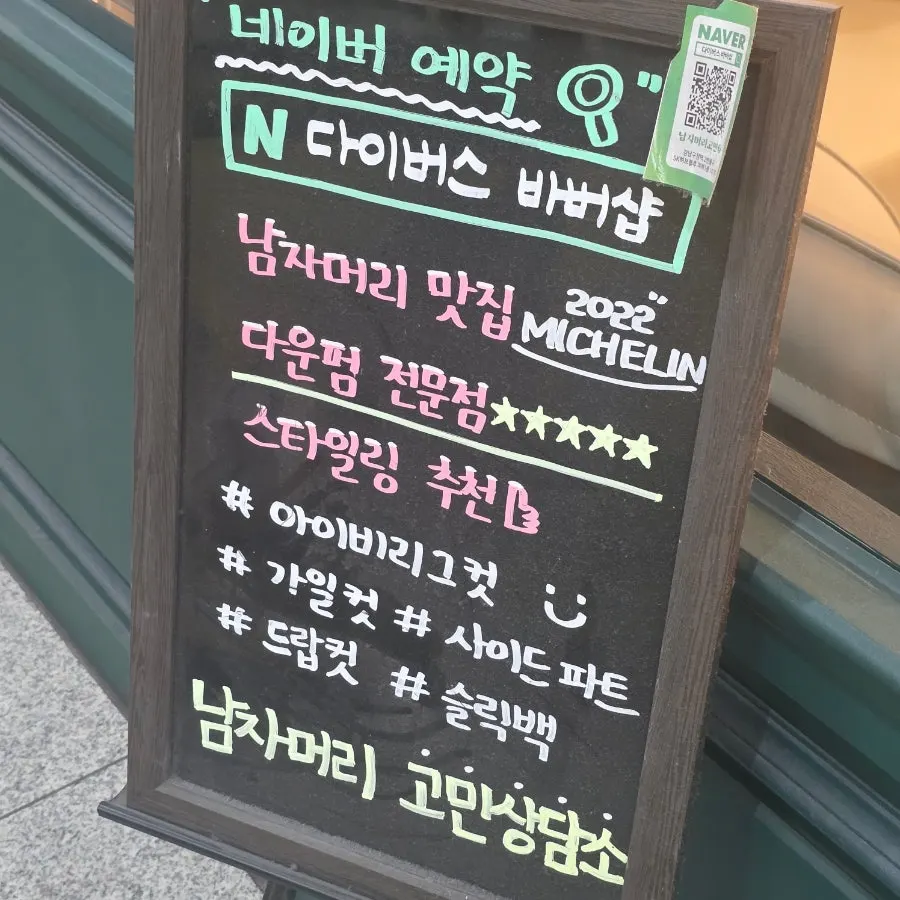 네이버 예약
N 다이버스 바버샵
남자머리 맛집 2022 MICHELIN
다운펌 전문점 ★★★★★
스타일링 추천
# 아이비리그컷
# 가일컷 # 사이드파트
# 드랍컷 # 슬릭백
남자머리 고민상담소
NAVER
다이버스 바버샵
남자머리고민상담소